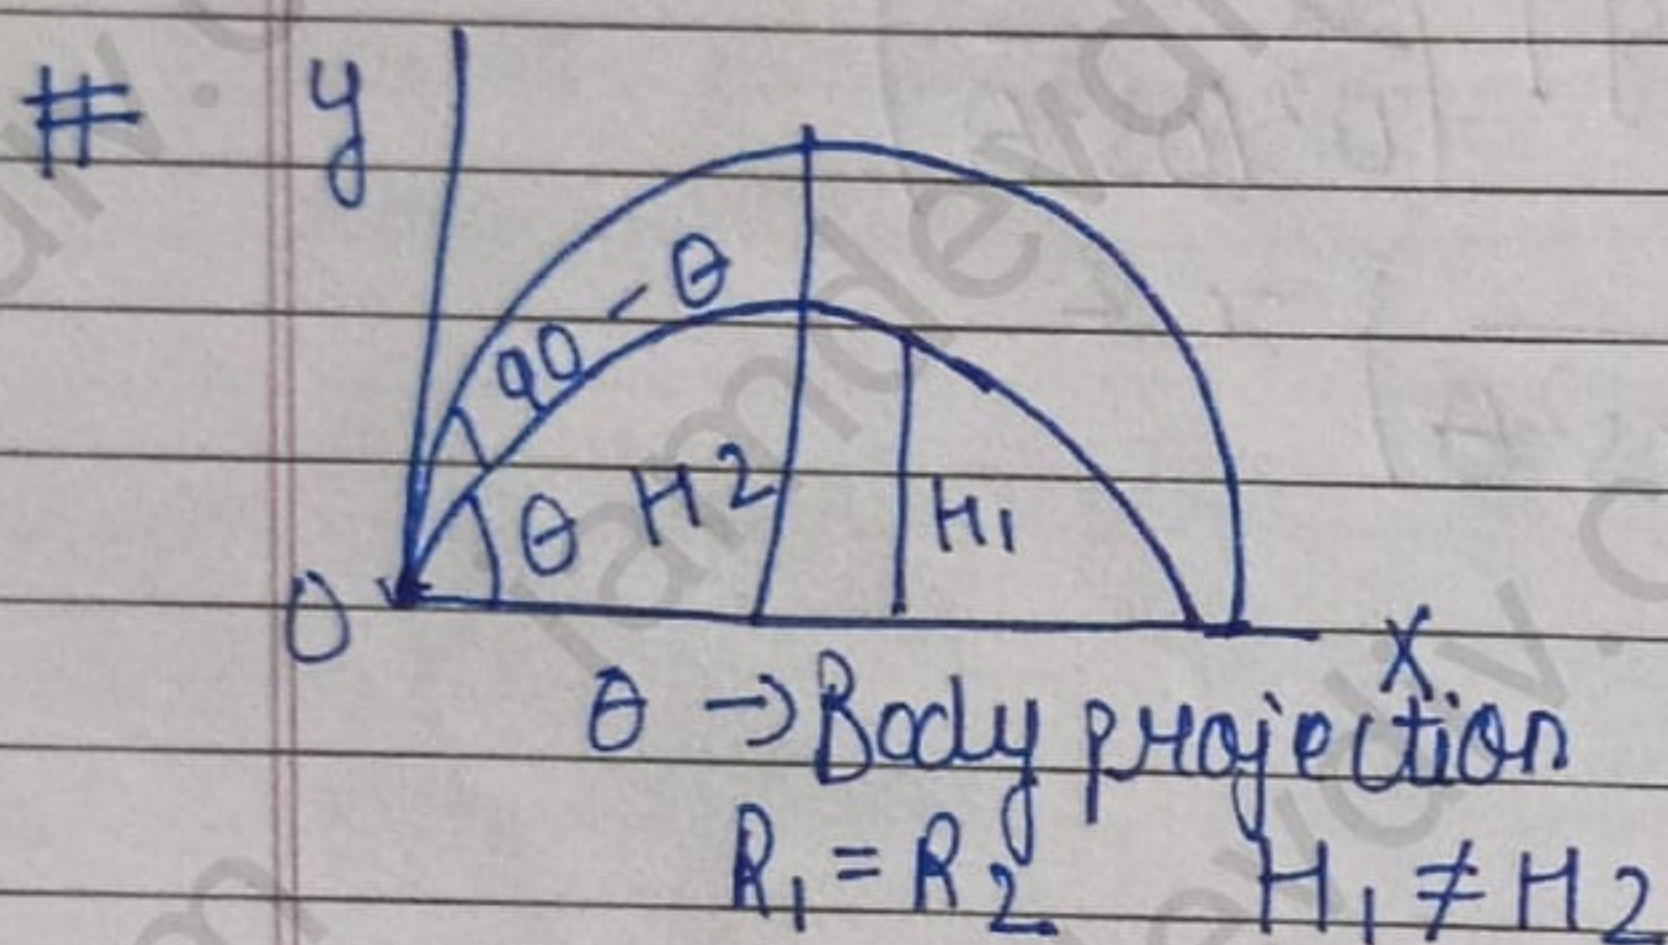 # y
90 - θ
θ H2 H₁
O
X
θ → Body projection
R₁ = R₂ H₁ ≠ H₂